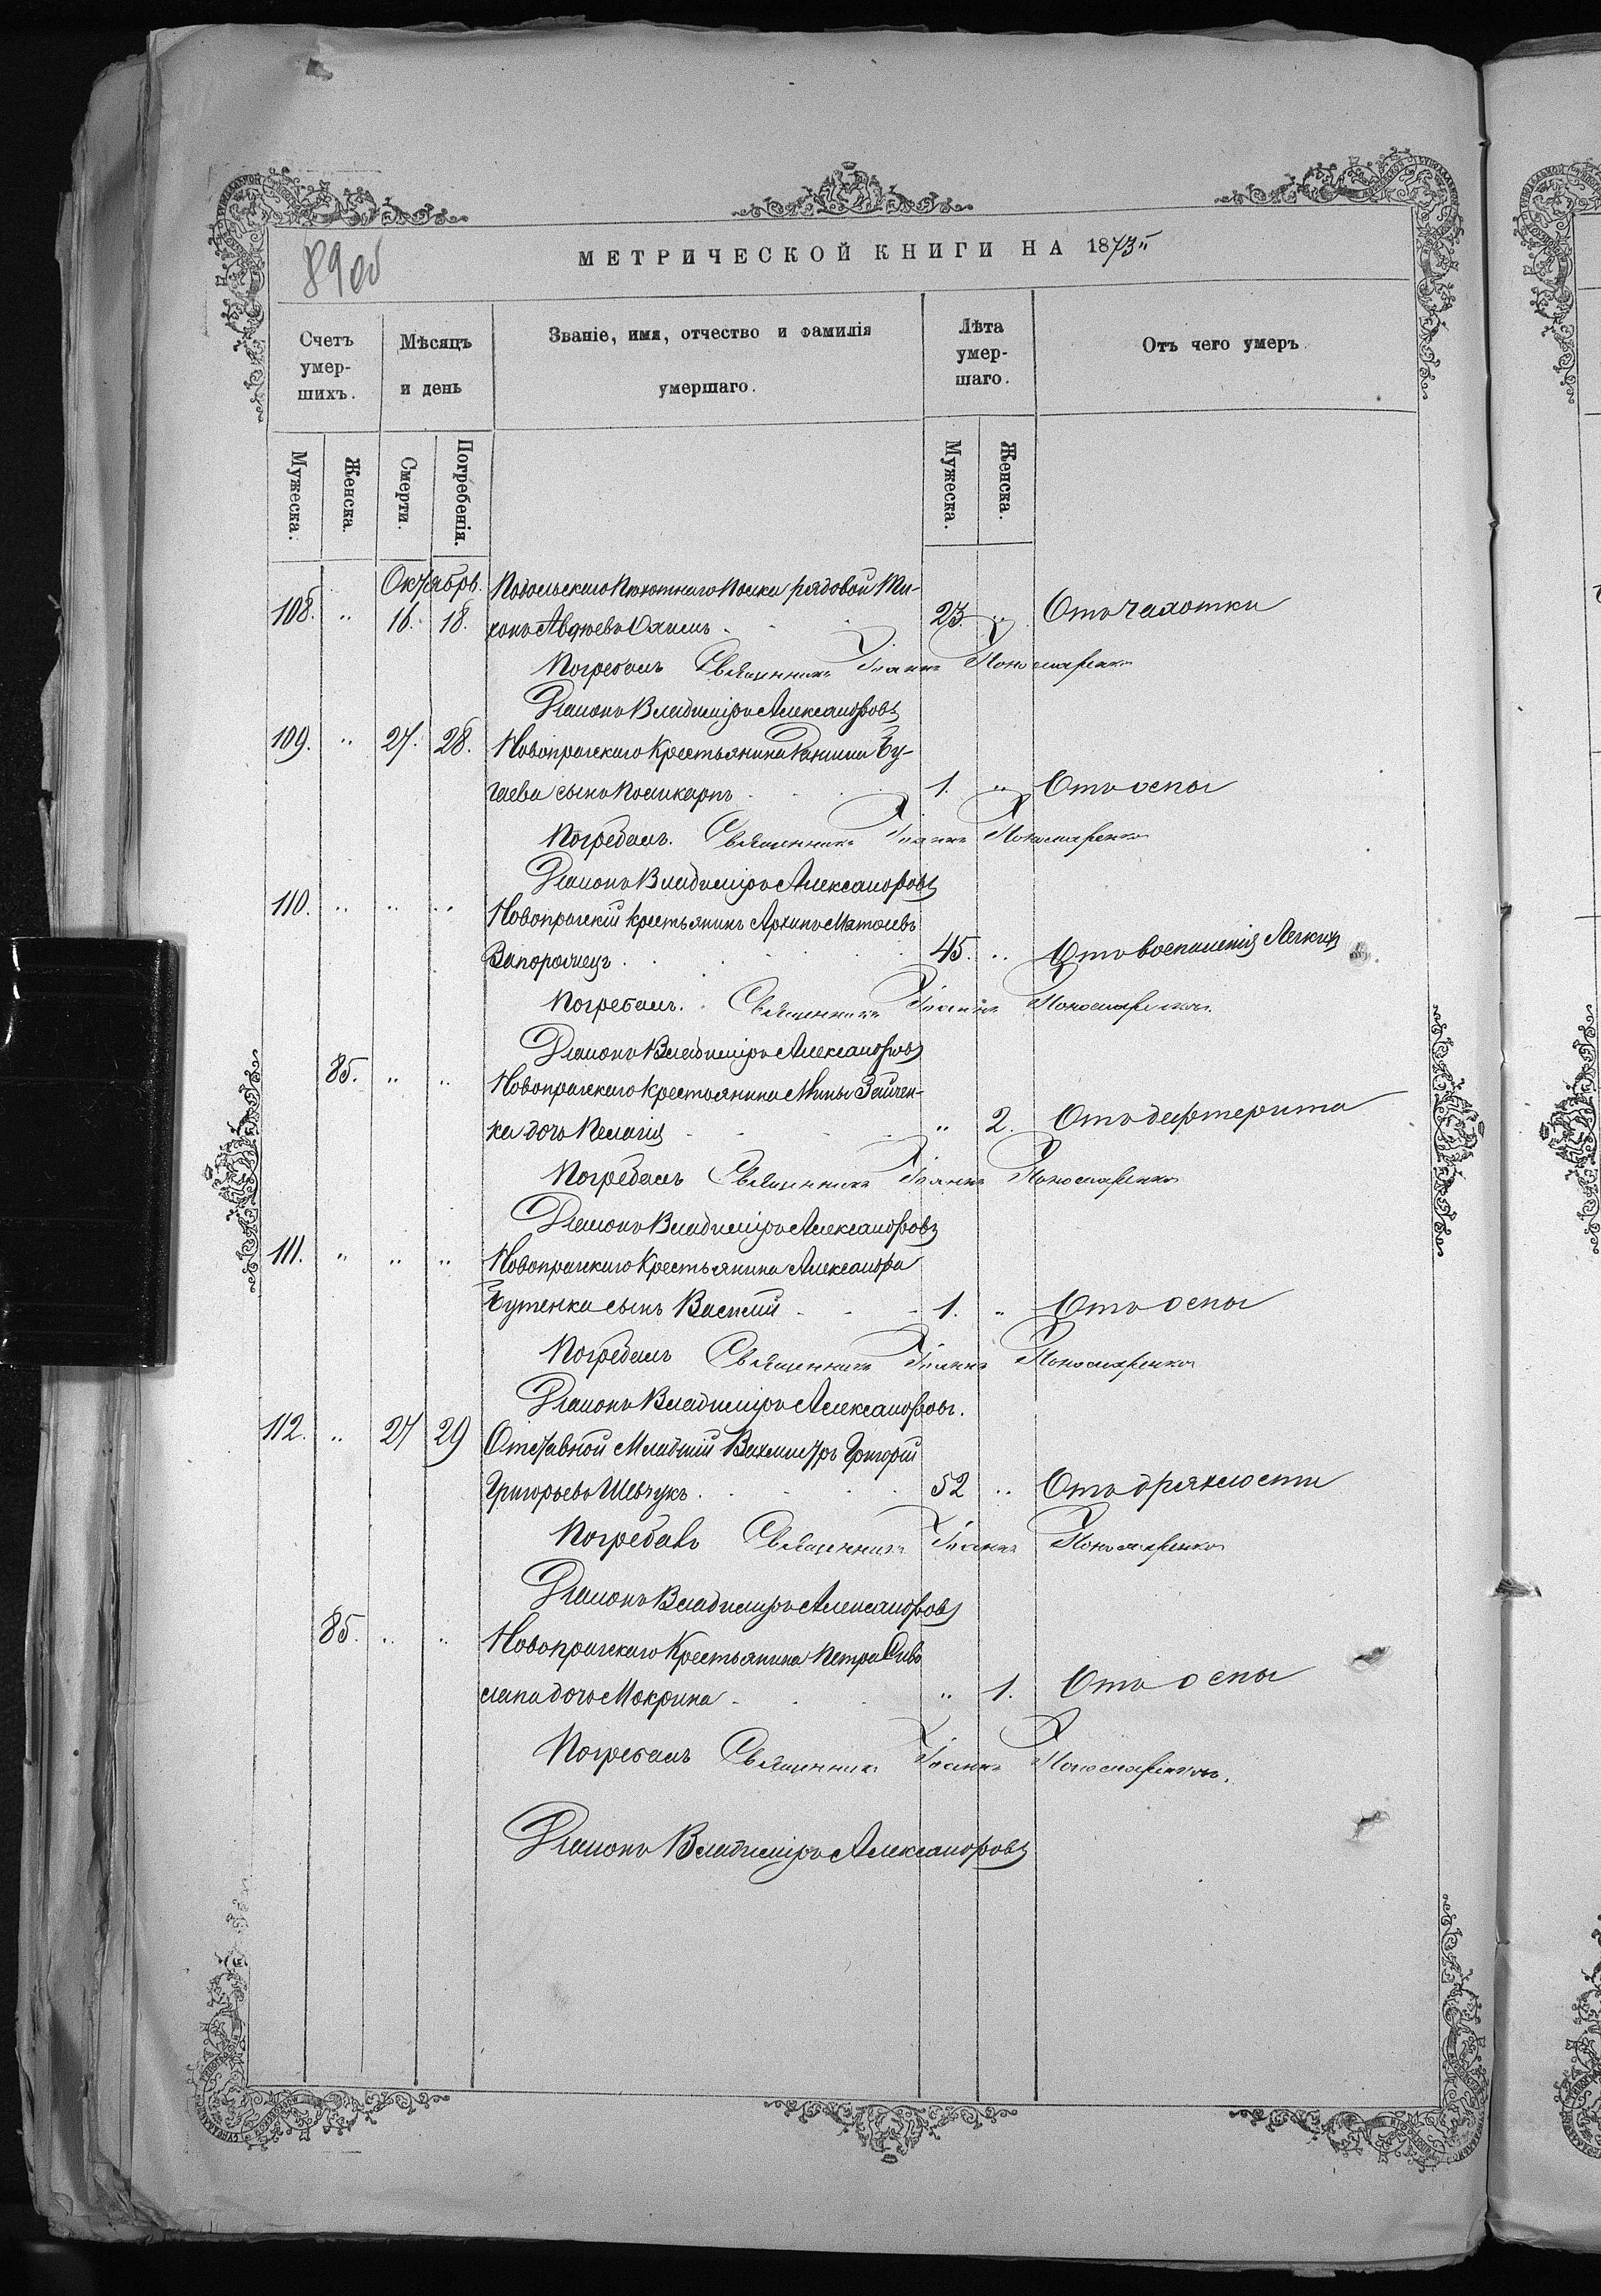 89об
МЕТРИЧЕСКОЙ КНИГИ НА 1873й
Счетъ умер-шихъ.
Мѣсяцъ и день
Званіе, имя, отчество и фамилія умершаго.
Лѣта умер-шаго.
Отъ чего умеръ
Мужеска.
Женска.
Смерти.
Погребенія.
Мужеска.
Женска.
Октябрь.
Подольскаго Пѣхотнаго Полка рядовой Ти-
108. " 16. 18. хонъ Авдѣевъ 23. " Отъ чахотки
Погребалъ Священникъ Іоаннъ Пономаренко
Діаконъ Владиміръ Александровъ
109. " 27. 28. Новопражскаго Крестьянина Данила Бу-
гаева сынъ Поликарпъ 1. " Отъ оспы
Погребалъ. Священникъ Іоаннъ Пономаренко
Діаконъ Владиміръ Александровъ
110. " " " Новопражскій крестьянинъ Архипъ Матвѣевъ
Запорожецъ 45. " Отъ воспаленія Легкихъ
Погребалъ. Священникъ Іоаннъ Пономаренко
Діаконъ Владиміръ Александровъ
85. " " Новопражскаго Крестьянина Мины Зайчен-
ка дочь Пелагія " 2. Отъ дифтерита
Погребалъ Священникъ Іоаннъ Пономаренко
Діаконъ Владиміръ Александровъ
111. " " " Новопражскаго Крестьянина Александра
Бутенка сынъ Василій 1. " Отъ оспы
Погребалъ Священникъ Іоаннъ Пономаренко
Діаконъ Владиміръ Александровъ.
112. " 27 29 Отставной Младшій Вахмистръ Григорій
Григорьевъ Шевчукъ 52 " Отъ дряхлости
Погребалъ Священникъ Іоаннъ Пономаренко
Діаконъ Владиміръ Александровъ
86. " " Новопражскаго Крестьянина Петра Сиво
лапа дочь Мокрина " 1. Отъ оспы
Погребалъ Священникъ Іоаннъ Пономаренко.
Діаконъ Владиміръ Александровъ